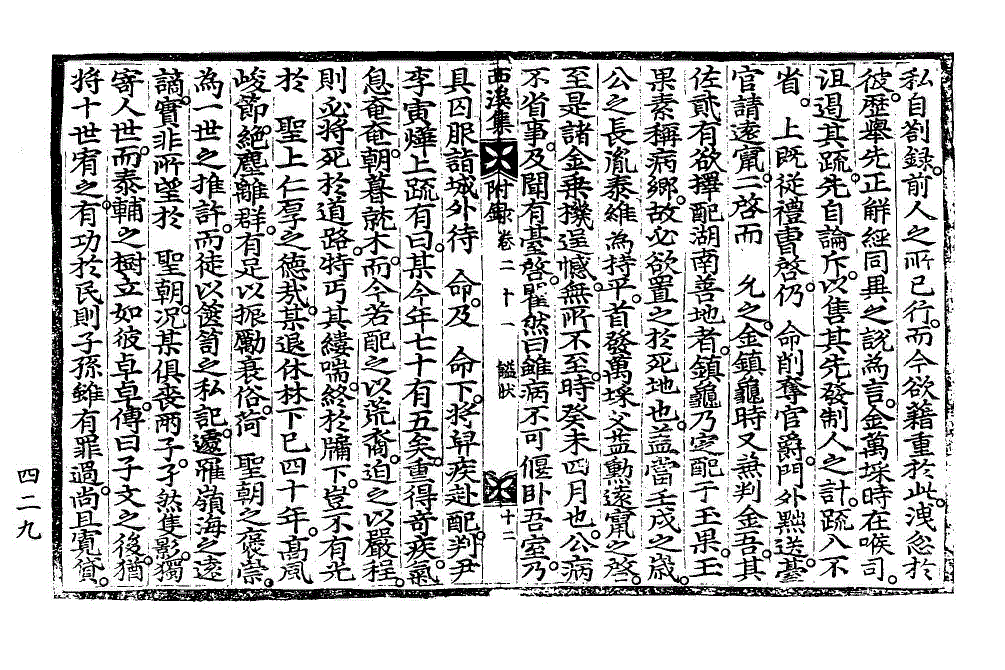 私自劄錄前人之所已行而今欲藉重於此洩忿於
彼歷擧先正解經同異之說爲言金萬埰時在喉司
沮遏其疏先自論斥以售其先發制人之計疏入不
省上旣從禮曺啓仍命削奪官爵門外黜送臺
官請遠竄一啓而允之金鎭龜時又兼判金吾其
佐貳有欲擇配湖南善地者鎭龜乃定配于玉果玉
果素稱病鄕故必欲置之於死地也盖當壬戌之歲
公之長胤泰維爲持平首發萬埰父益勳遠竄之啓
至是諸金乘機逞憾無所不至時癸未四月也公病
不省事及聞有臺啓瞿然曰雖病不可偃卧吾室乃
西溪集 附錄卷二十一 諡狀 十二
具囚服詣城外待命及命下將舁疾赴配判尹
李寅燁上疏有曰某今年七十有五矣重得奇疾氣
息奄奄朝暮就木而今若配之以荒裔迫之以嚴程
則必將死於道路特丐其縷喘終於牖下豈不有光
於聖上仁厚之德哉某退休林下已四十年高風
峻節絶塵離群有足以振勵衰俗荷聖朝之褒崇
爲一世之推許而徒以篋笥之私記遽罹嶺海之遠
謫實非所望於聖朝况某俱喪兩子孑然隻影獨
寄人世而泰輔之樹立如彼卓卓傳曰子文之後猶
將十世宥之有功於民則子孫雖有罪過尙且寬貸
四二九